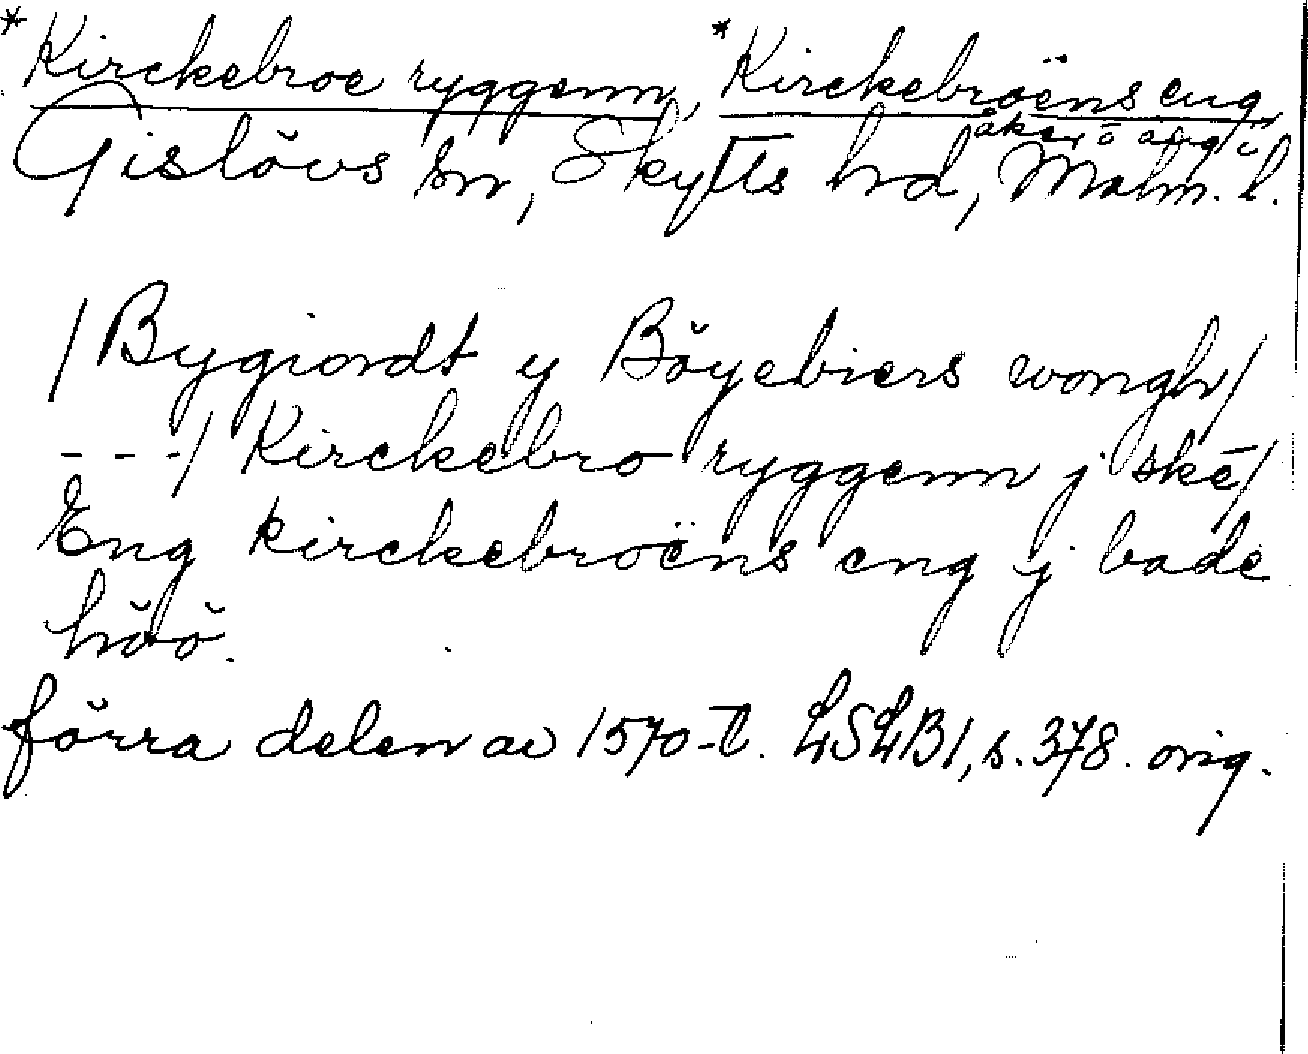 *Kirckebroe ryggenn, *Kirckebroëns eng
åker o äng i
Gislövs sn, Skytts hd, Malm. l.
/Bygiordt y Böyebiers wongh/
---/ Kirckebro ryggenn j ske/
Eng kirckebroëns eng j bade
höö.
förra delen av 1570-t. LSLB1, s. 378. orig.